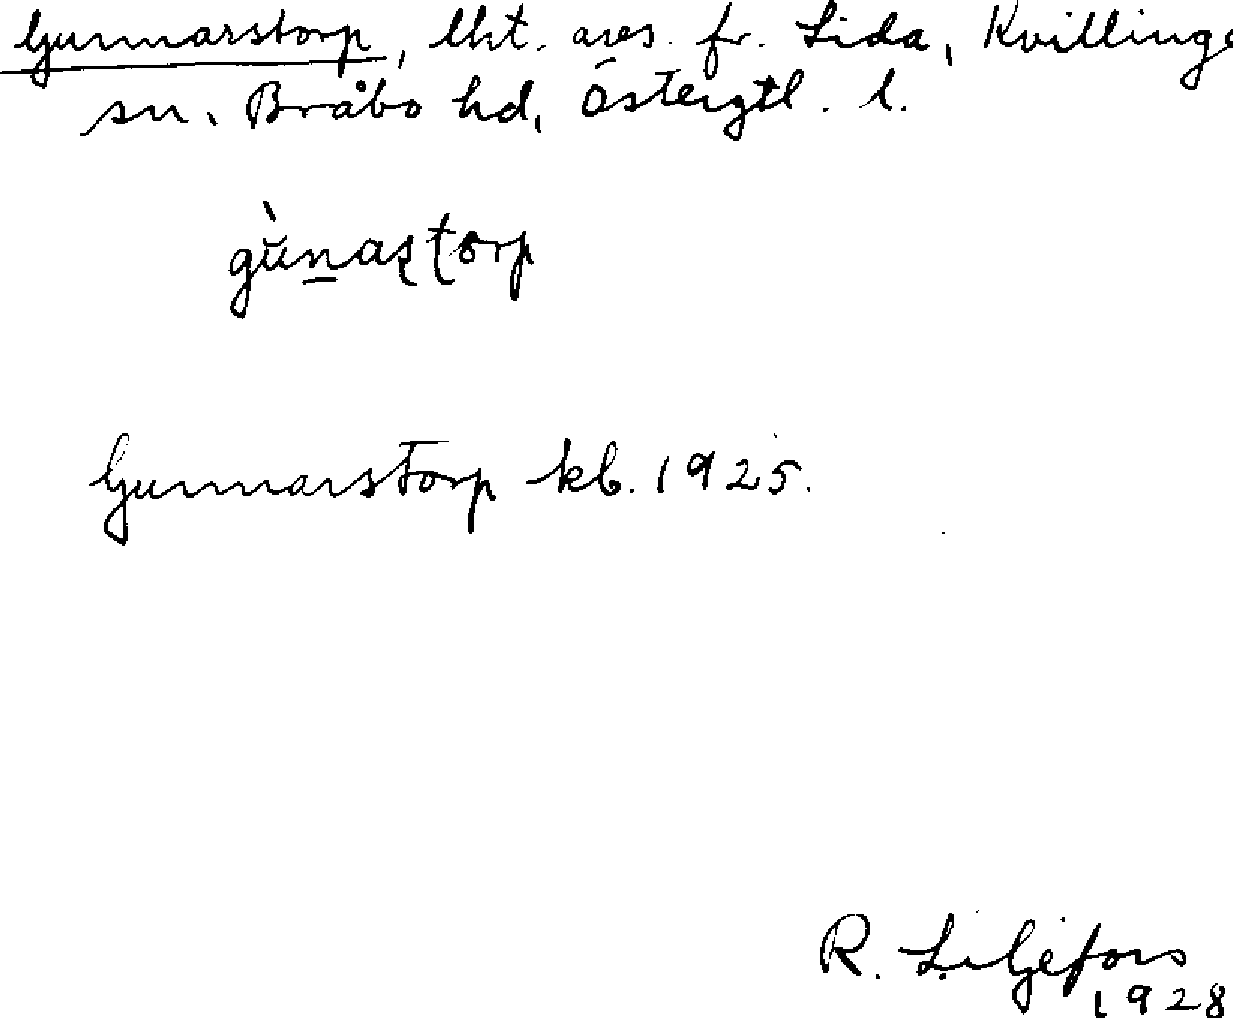 Gunnarstorp, lht. avs. fr. Lida, Kvillinge
sn. Bråbo hd, Östergtl. l.
gùn̲aʂʈorp
Gunnarstorp kb. 1925.
R. Liljefors
1928